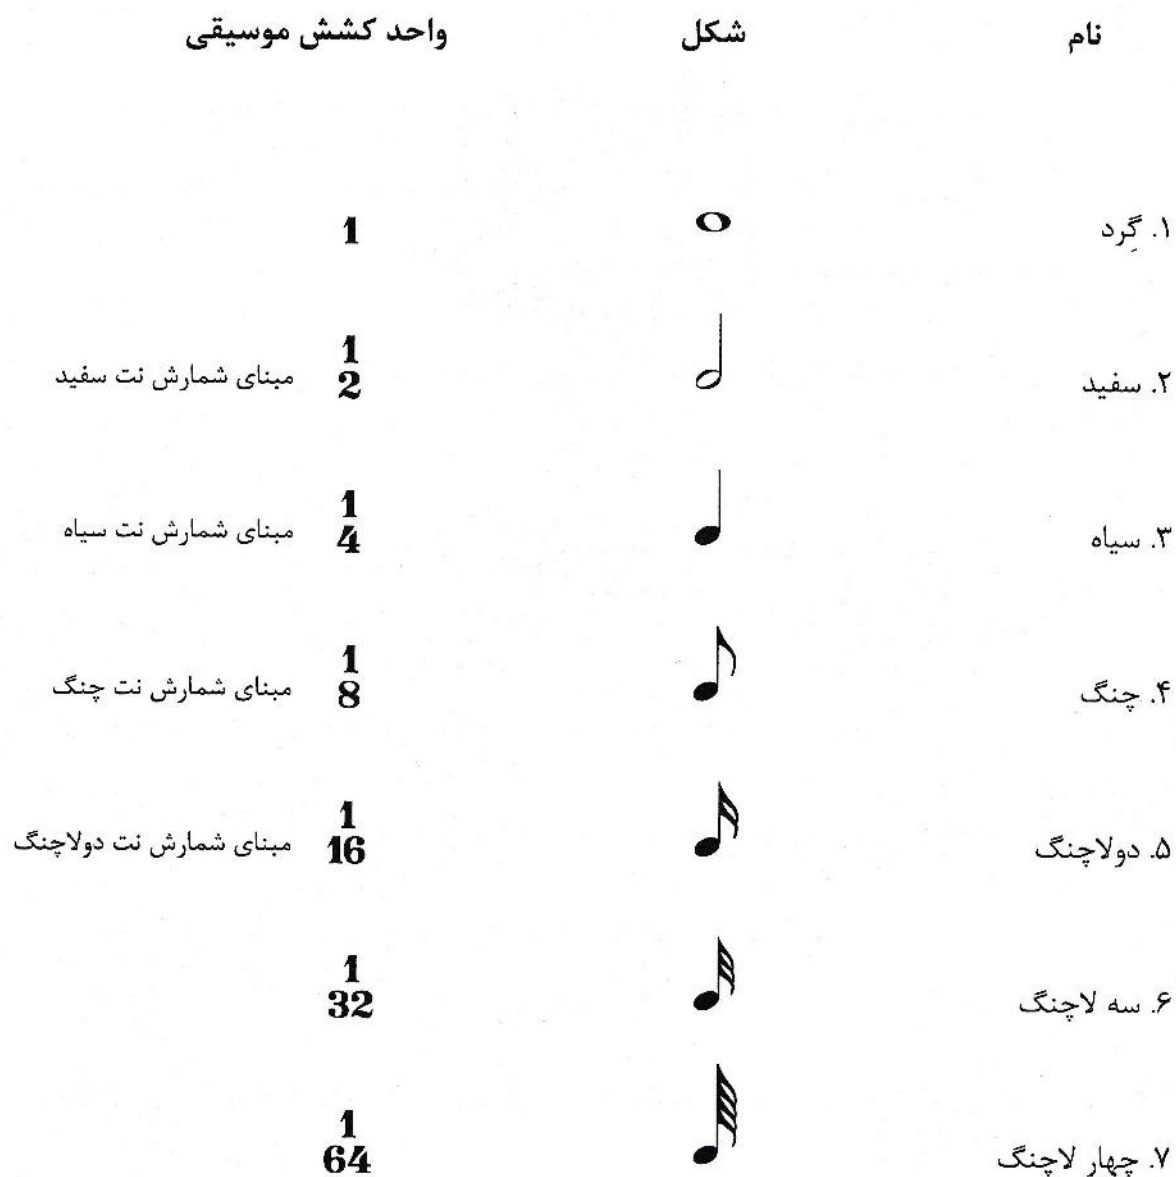 نام شکل واحد کشش موسیقی
۱. گِرد 1
۲. سفید 1/2 مبنای شمارش نت سفید
۳. سیاه 1/4 مبنای شمارش نت سیاه
۴. چنگ 1/8 مبنای شمارش نت چنگ
۵. دولاچنگ 1/16 مبنای شمارش نت دولاچنگ
۶. سه لاچنگ 1/32
۷. چهار لاچنگ 1/64